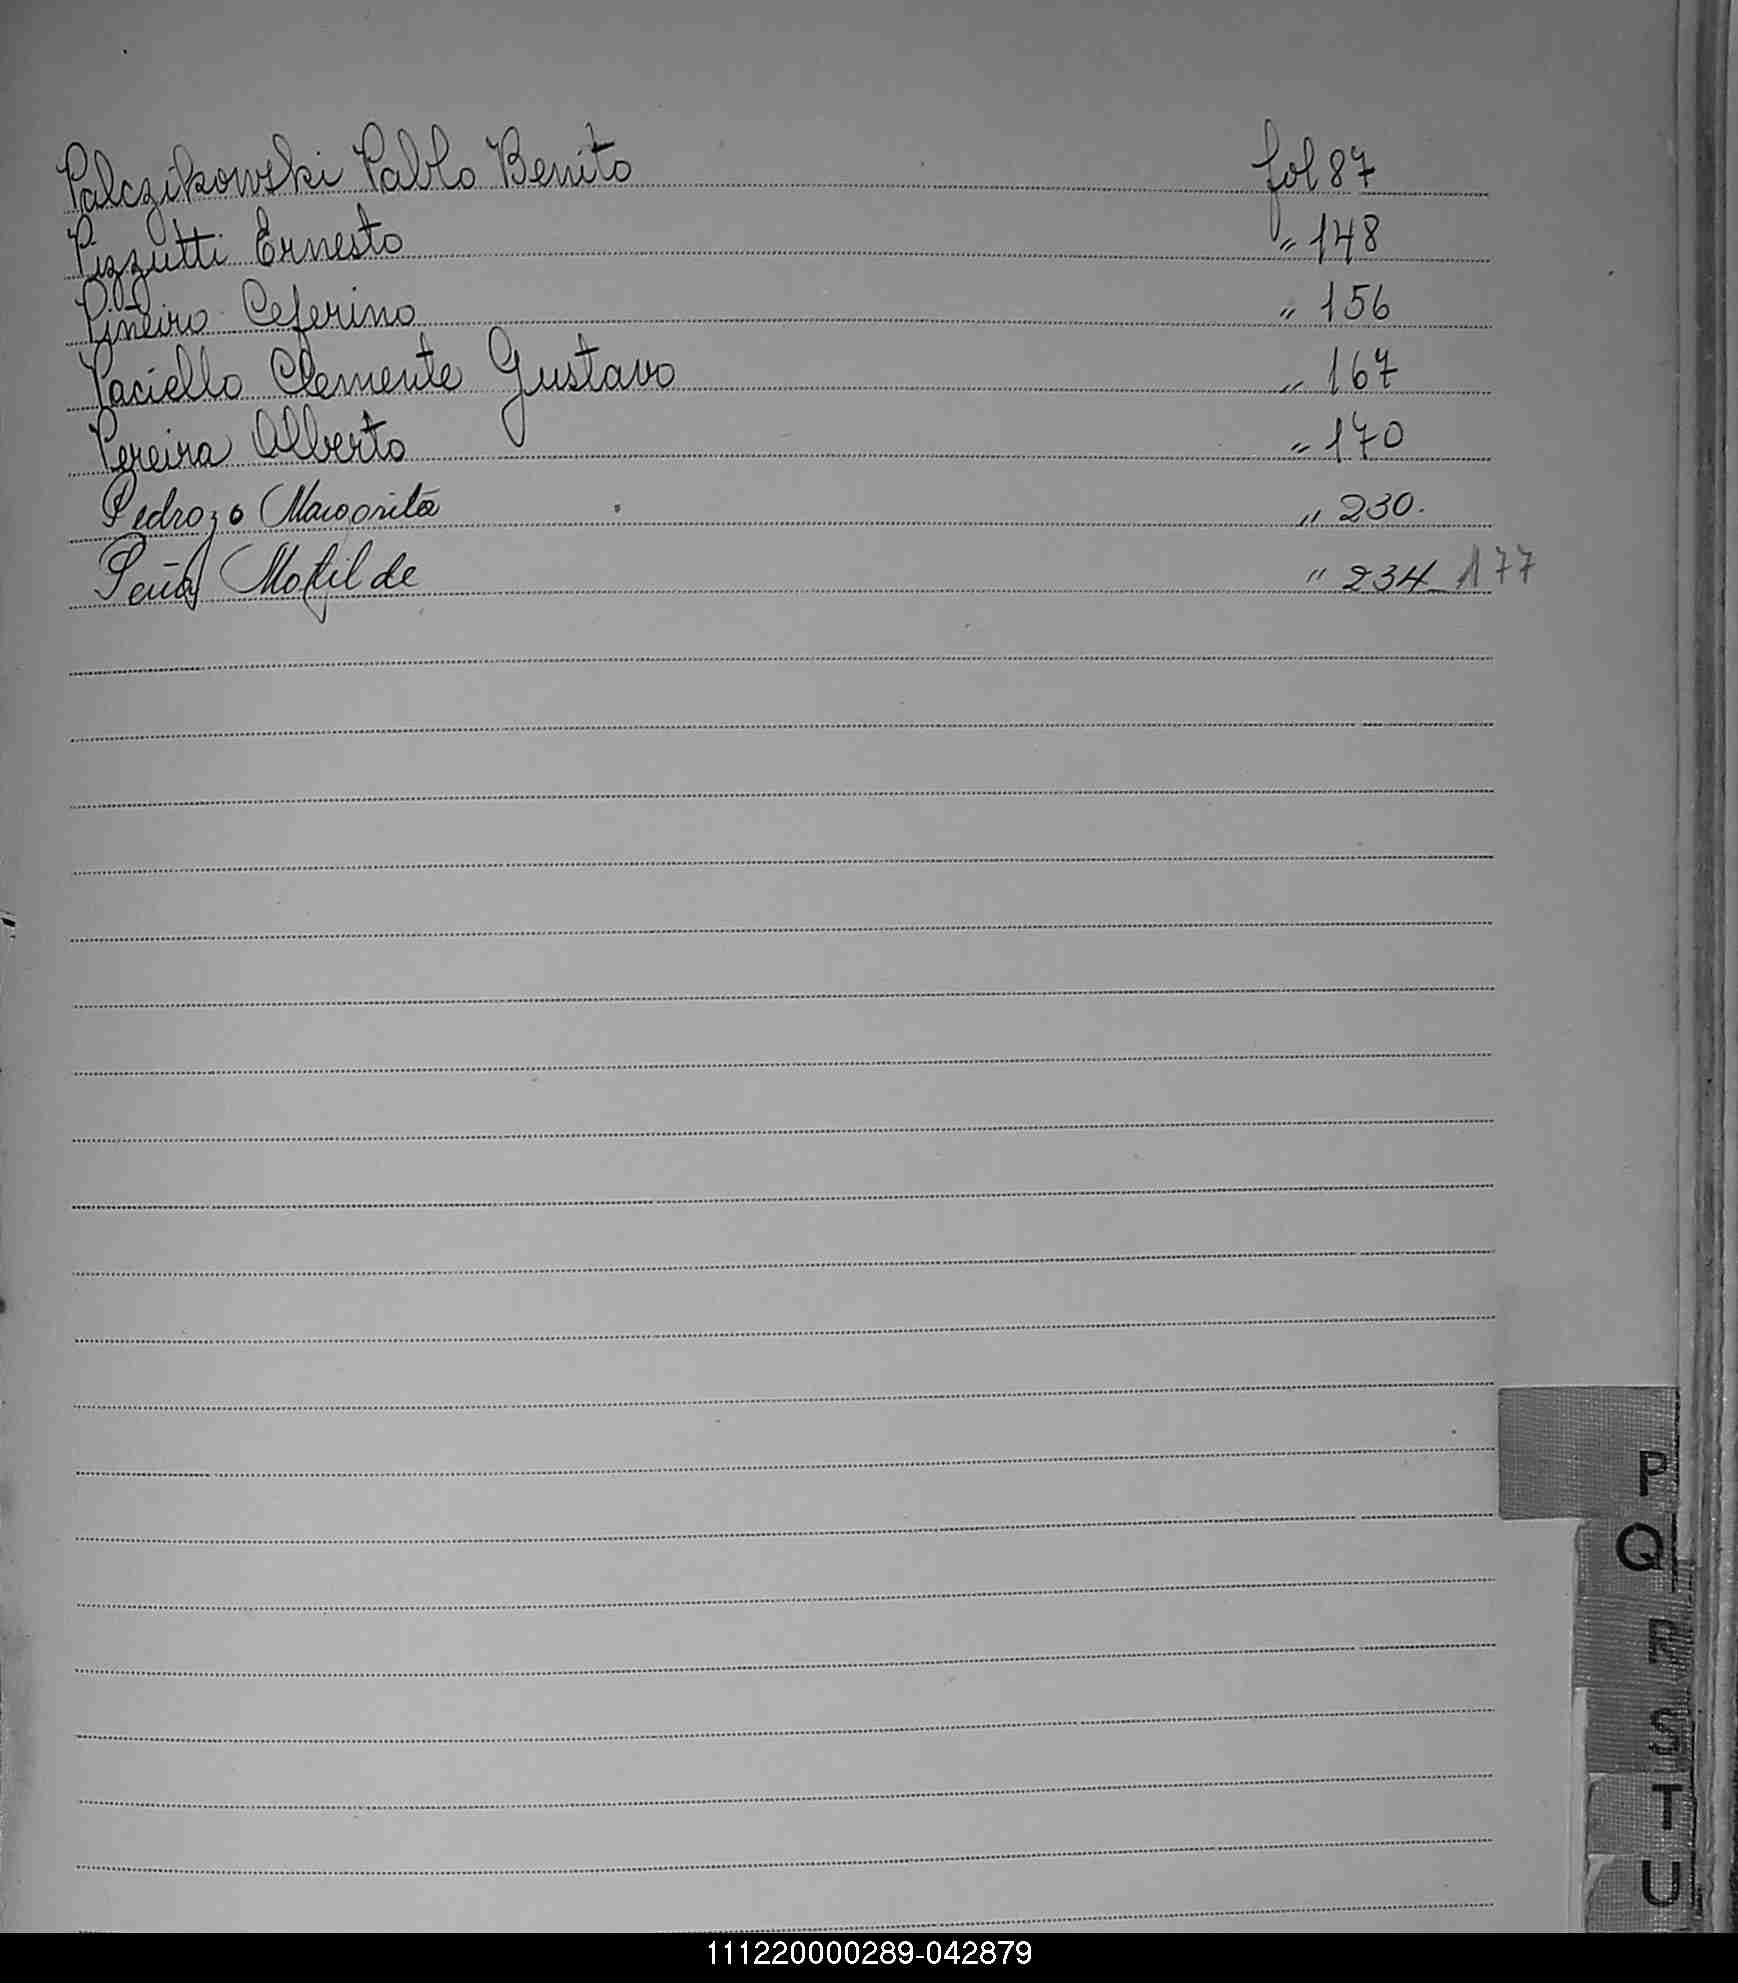 Palczikowski Pablo Benito fol 87
Pizzutti Ernesto " 148
Piñeiro Ceferino " 156
Paciello Clemente Gustavo " 167
Pereira Alberto " 170
Pedrozo Margarita " 230.
Peña Matilde " 234 177
P
Q
R
S
T
U
111220000289-042879